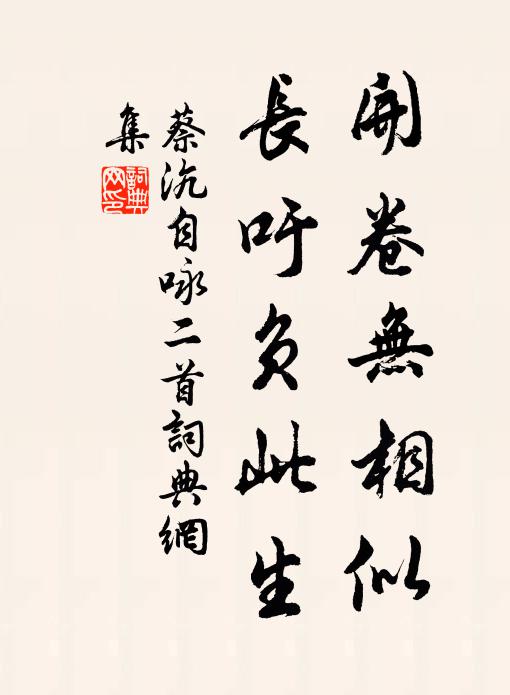 開卷無相似
長吁負此生
蔡沆自咏二首詞典網
集
詞典網印